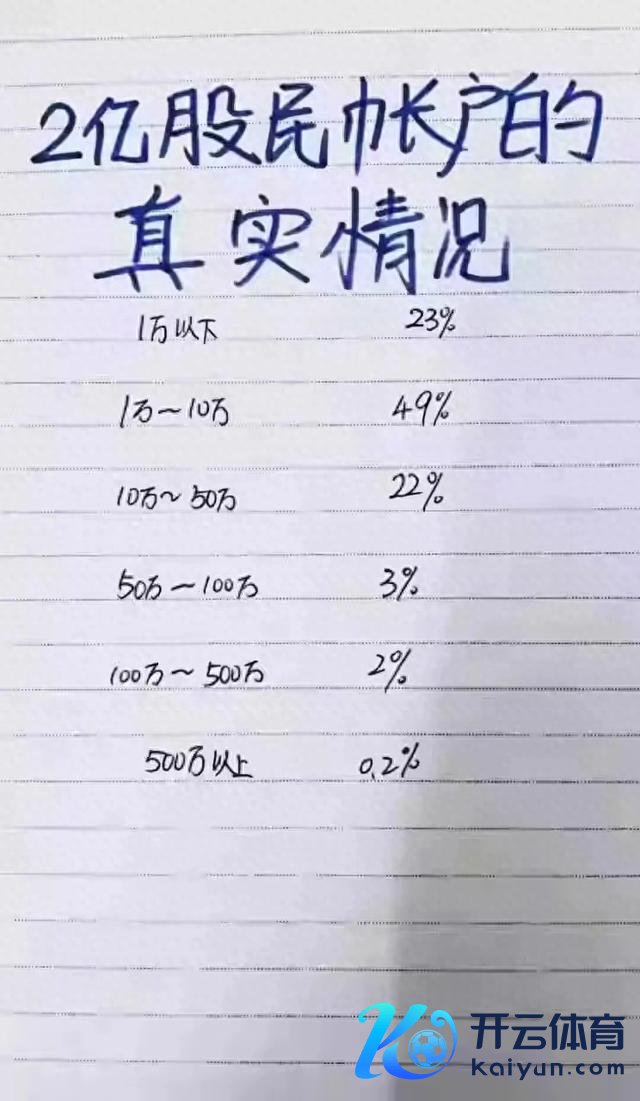 2亿股民帐户的
真实情况
1万以下 23%
1万~10万 49%
10万~50万 22%
50万-100万 3%
100万~500万 2%
500万以上 0.2%
开云体育
kaiyun.com